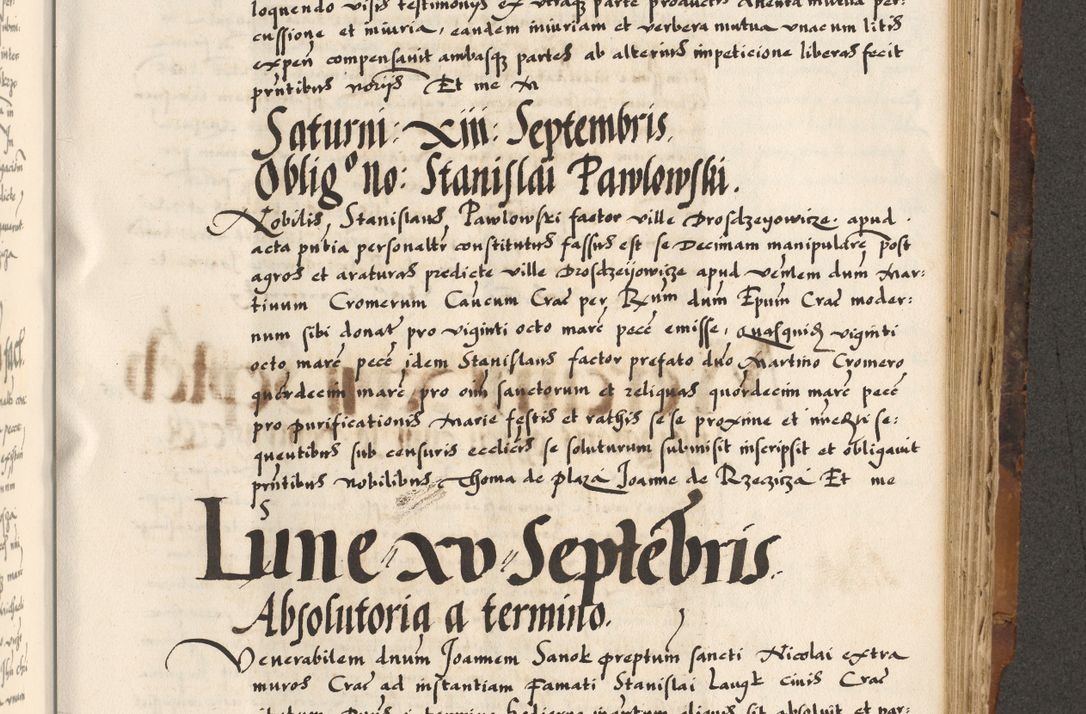 loquendo visis testimonijs ex utraqȝ parte productis Attenta mutua per:
cussione et iniuria, eandem iniuriam et verbera mutua unacum litis
expeñ compensavit ambasqȝ partes ab alterius impeticione liberas fecit
pñtibus norijs Et me
Saturni: xiii: Septembris.
Oblig⁰ No: Stanislai Pawlowski.
Nobilis Stanislaus Pawlowski factor ville Drosdzeyowicze. apud.
acta pñtia personaltr constitutus fassus est se Decimam manipularē post
agros et araturas predicte ville Drosdzeijowicze apud Veñlem dum Mar:
tinum Cromerum Cañcum Crac̄ per Rx̄um dum Epum Crac̄ moder:
num sibi donat pro viginti octo marc̄ pecc̄ emisse, quasquidȝ viginti
octo marc̄ pecc̄ idem Stanislaus factor prefato dno Martino Cromero
quordecim marc̄ pro oim̄ sanctorum et reliquas quordecim marc̄ pecc̄
pro purificationis Marie festis et rathis se se proxime et immediate se:
quentibus sub censuris eccliēis se soluturum submisit inscripsit et obligavit
pñtibus nobilibus Thoma de Plaza Joanne de Rzeczicza Et me
Lune xv Septēbris.
Absolutoria a termino.
Venerabilem dnum Joannem Sanok preptum sancti Nicolai extra
muros Crac̄ ad instantiam Famati Stanislai Laugk civis Crac̄